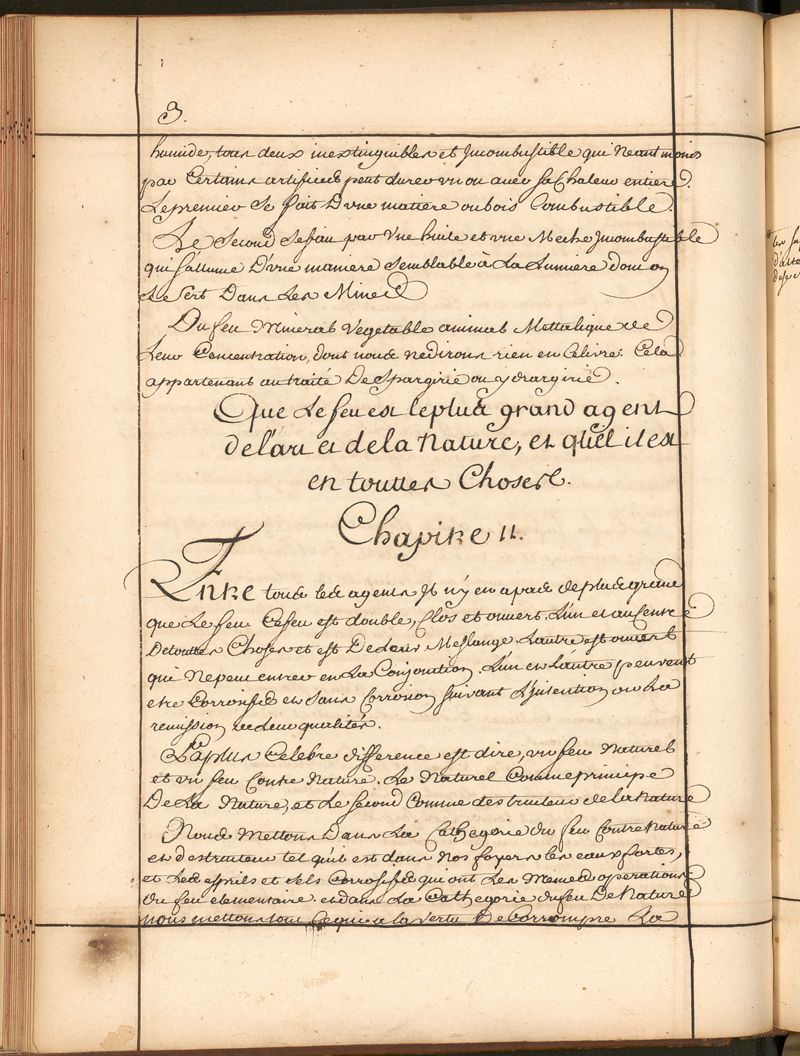 3.
humide, tous deux inextinguibles et Jncombustible qui Neantmoins
par Certains artifices peut durer un an avec sa Chaleur entiere.
Le premier Se fait D'vne matiere ou bois Combustible.
Le Second se fait par vne huile et vne Meche Jncombustible
qui s'allume D'vne maniere Semblable à La Lumiere dont on
se Sert Dans Les Mines
Du feu Mineral Vegetable animal Mettalique de
Leur Concentration, dont nous ne dirons rien en Ce livre. Cela
appartenant au traité De Spargirie ou ydrargirie.
Que Le feu est le plus grand agent
de l'art et de la Nature, et quel il est
en touttes Choses.
Chapitre 11.
Entre tous les agents Jl n'y en a pas de plus grand
que Le feu Ce feu est double, Clos et ouvert. L'un et au Centre
De touttes Choses et est De Leur Meslange. Lautre est ouvert
qui Ne peut entrer en La Conjonction. L'un et L'autre peuvent
etre Corrosifs et Sans Corrosion suivant L'jntention ou La
remission de Leur qualités.
La plus Celebre difference est dire, vn feu Naturel
et vn feu Contre Nature. Le Naturel Comme principe
De La Nature, et Le Second Comme destructeur de la Nature
Nous Mettons Dans La Cathegorie du feu Contre Nature
et destructeur tel qu'il est dans Nos foyers les eaux fortes,
et Les esprits et Sels Corrosifs qui ont Les Mémes operations
du feu elementaire. et dans La Cathegorie du feu De Nature
nous mettons tout Ce qui a la Vertu De Corrompre La